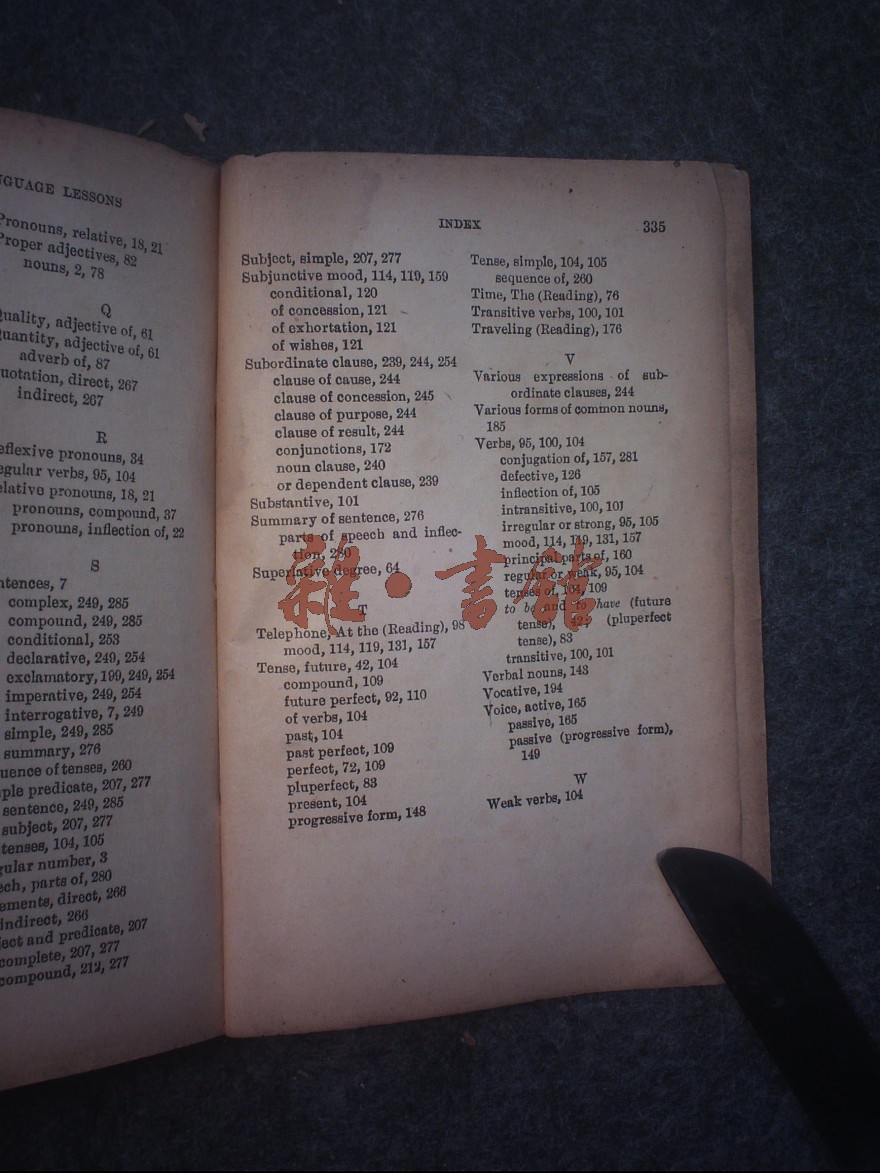 LANGUAGE LESSONS
Pronouns, relative, 18, 21
Proper adjectives, 82
nouns, 2, 78
Q
Quality, adjective of, 61
Quantity, adjective of, 61
adverb of, 87
Quotation, direct, 267
indirect, 267
R
Reflexive pronouns, 34
Regular verbs, 95, 104
Relative pronouns, 18, 21
pronouns, compound, 37
pronouns, inflection of, 22
S
ntences, 7
complex, 249, 285
compound, 249, 285
conditional, 253
declarative, 249, 254
exclamatory, 199, 249, 254
imperative, 249, 254
interrogative, 7, 249
simple, 249, 285
summary, 276
uence of tenses, 260
ple predicate, 207, 277
sentence, 249, 285
subject, 207, 277
tenses, 104, 105
gular number, 3
ech, parts of, 280
ements, direct, 266
indirect, 266
ject and predicate, 207
complete, 207, 277
compound, 212, 277
INDEX 335
Subject, simple, 207, 277
Subjunctive mood, 114, 119, 159
conditional, 120
of concession, 121
of exhortation, 121
of wishes, 121
Subordinate clause, 239, 244, 254
clause of cause, 244
clause of concession, 245
clause of purpose, 244
clause of result, 244
conjunctions, 172
noun clause, 240
or dependent clause, 239
Substantive, 101
Summary of sentence, 276
parts of speech and inflec-
tion, 280
Superlative degree, 64
T
Telephone, At the (Reading), 98
mood, 114, 119, 131, 157
Tense, future, 42, 104
compound, 109
future perfect, 92, 110
of verbs, 104
past, 104
past perfect, 109
perfect, 72, 109
pluperfect, 83
present, 104
progressive form, 148
Tense, simple, 104, 105
sequence of, 260
Time, The (Reading), 76
Transitive verbs, 100, 101
Traveling (Reading), 176
V
Various expressions of sub-
ordinate clauses, 244
Various forms of common nouns,
185
Verbs, 95, 100, 104
conjugation of, 157, 281
defective, 126
inflection of, 105
intransitive, 100, 101
irregular or strong, 95, 105
mood, 114, 119, 131, 157
principal parts of, 160
regular or weak, 95, 104
tenses of, 104, 109
to be and to have (future
tense), 42; (pluperfect
tense), 83
transitive, 100, 101
Verbal nouns, 143
Vocative, 194
Voice, active, 165
passive, 165
passive (progressive form),
149
W
Weak verbs, 104
雜·書館